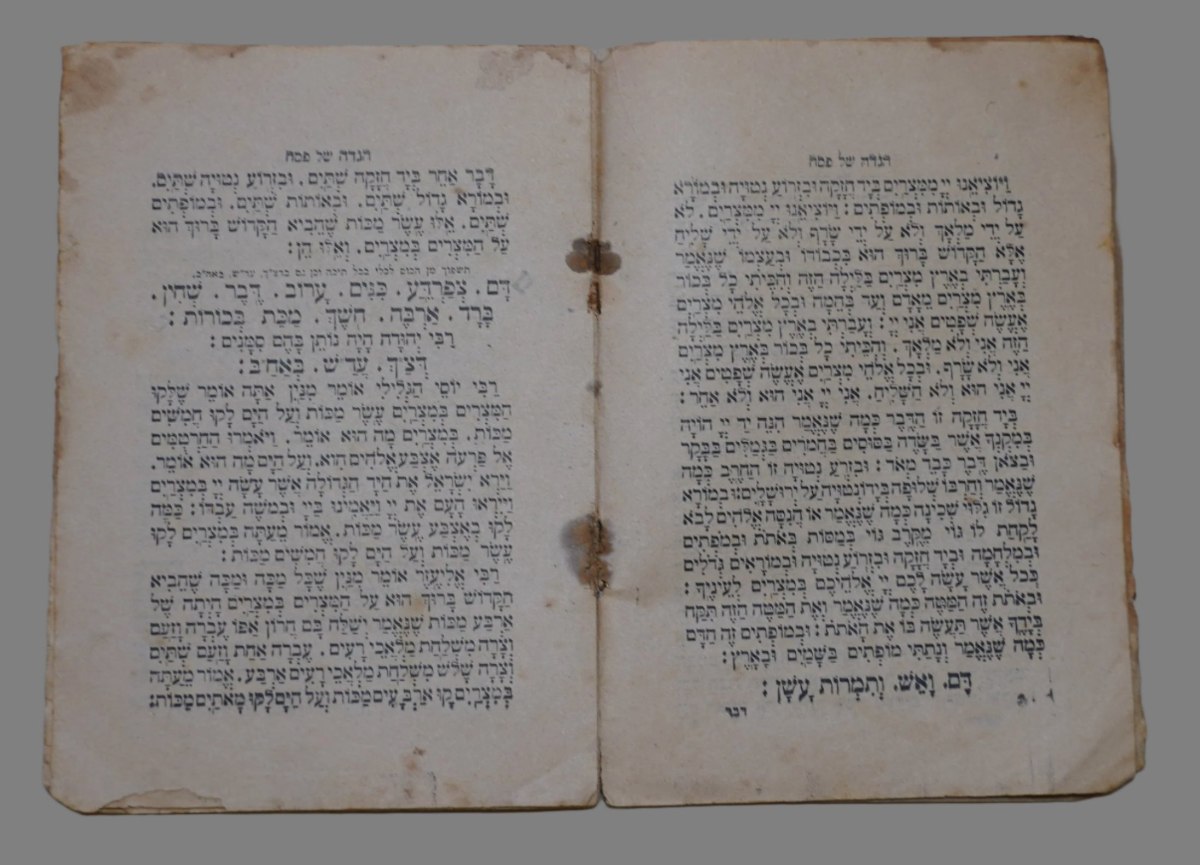 הגדה של פסח
וַיּוֹצִיאֵנוּ יְיָ מִמִּצְרַיִם בְּיָד חֲזָקָה וּבִזְרוֹעַ נְטוּיָה וּבְמוֹרָא
גָדוֹל וּבְאוֹתוֹת וּבְמוֹפְתִים : וַיּוֹצִיאֵנוּ יְיָ מִמִּצְרַיִם. לֹא
עַל יְדֵי מַלְאָךְ וְלֹא עַל יְדֵי שָׂרָף וְלֹא עַל יְדֵי שָׁלִיחַ
אֶלָּא הַקָּדוֹשׁ בָּרוּךְ הוּא בִּכְבוֹדוֹ וּבְעַצְמוֹ שֶׁנֶּאֱמַר
וְעָבַרְתִּי בְאֶרֶץ מִצְרַיִם בַּלַּיְלָה הַזֶּה וְהִכֵּיתִי כָל בְּכוֹר
בְּאֶרֶץ מִצְרַיִם מֵאָדָם וְעַד בְּהֵמָה וּבְכָל אֱלֹהֵי מִצְרַיִם
אֶעֱשֶׂה שְׁפָטִים אֲנִי יְיָ : וְעָבַרְתִּי בְאֶרֶץ מִצְרַיִם בַּלַּיְלָה
הַזֶּה אֲנִי וְלֹא מַלְאָךְ. וְהִכֵּיתִי כָל בְּכוֹר בְּאֶרֶץ מִצְרַיִם
אֲנִי וְלֹא שָׂרָף. וּבְכָל אֱלֹהֵי מִצְרַיִם אֶעֱשֶׂה שְׁפָטִים אֲנִי
יְיָ אֲנִי הוּא וְלֹא הַשָּׁלִיחַ. אֲנִי יְיָ אֲנִי הוּא וְלֹא אַחֵר :
בְּיָד חֲזָקָה זוֹ הַדֶּבֶר כְּמָה שֶׁנֶּאֱמַר הִנֵּה יַד יְיָ הוֹיָה
בְּמִקְנְךָ אֲשֶׁר בַּשָּׂדֶה בַּסּוּסִים בַּחֲמֹרִים בַּגְּמַלִּים בַּבָּקָר
וּבַצֹּאן דֶּבֶר כָּבֵד מְאֹד : וּבִזְרֹעַ נְטוּיָה זוֹ הַחֶרֶב כְּמָה
שֶׁנֶּאֱמַר וְחַרְבּוֹ שְׁלוּפָה בְּיָדוֹ נְטוּיָה עַל יְרוּשָׁלָיִם : וּבְמוֹרָא
גָדוֹל זוֹ גִלּוּי שְׁכִינָה כְּמָה שֶׁנֶּאֱמַר אוֹ הֲנִסָּה אֱלֹהִים לָבֹא
לָקַחַת לוֹ גוֹי מִקֶּרֶב גּוֹי בְּמַסּוֹת בְּאֹתֹת וּבְמֹפְתִים
וּבְמִלְחָמָה וּבְיָד חֲזָקָה וּבִזְרוֹעַ נְטוּיָה וּבְמוֹרָאִים גְּדֹלִים
כְּכֹל אֲשֶׁר עָשָׂה לָכֶם יְיָ אֱלֹהֵיכֶם בְּמִצְרַיִם לְעֵינֶיךָ :
וּבְאֹתֹת זֶה הַמַּטֶּה כְּמָה שֶׁנֶּאֱמַר וְאֶת הַמַּטֶּה הַזֶּה תִּקַּח
בְּיָדֶךָ אֲשֶׁר תַּעֲשֶׂה בּוֹ אֶת הָאֹתֹת : וּבְמוֹפְתִים זֶה הַדָּם
כְּמָה שֶׁנֶּאֱמַר וְנָתַתִּי מוֹפְתִים בַּשָּׁמַיִם וּבָאָרֶץ :
דָּם. וָאֵשׁ. וְתִמְרוֹת עָשָׁן :
דבר
הגדה של פסח
דָּבָר אַחֵר בְּיָד חֲזָקָה שְׁתַּיִם. וּבִזְרוֹעַ נְטוּיָה שְׁתַּיִם.
וּבְמוֹרָא גָדוֹל שְׁתַּיִם. וּבְאוֹתוֹת שְׁתַּיִם. וּבְמוֹפְתִים
שְׁתַּיִם. אֵלּוּ עֶשֶׂר מַכּוֹת שֶׁהֵבִיא הַקָּדוֹשׁ בָּרוּךְ הוּא
עַל הַמִּצְרִים בְּמִצְרַיִם. וְאֵלּוּ הֵן :
תשפוך מן הכוס לכלי בכל תיבה וכן גם בדצ״ך, עד״ש, באח״ב.
דָּם. צְפַרְדֵּעַ. כִּנִּים. עָרוֹב. דֶּבֶר. שְׁחִין.
בָּרָד. אַרְבֶּה. חֹשֶׁךְ. מַכַּת בְּכוֹרוֹת :
רַבִּי יְהוּדָה הָיָה נוֹתֵן בָּהֶם סִמָּנִים :
דְּצַ״ךְ. עֲדַ״שׁ. בְּאַחַ״ב :
רַבִּי יוֹסֵי הַגְּלִילִי אוֹמֵר מִנַּיִן אַתָּה אוֹמֵר שֶׁלָּקוּ
הַמִּצְרִים בְּמִצְרַיִם עֶשֶׂר מַכּוֹת וְעַל הַיָּם לָקוּ חֲמִשִּׁים
מַכּוֹת. בְּמִצְרַיִם מָה הוּא אוֹמֵר. וַיֹּאמְרוּ הַחַרְטֻמִּים
אֶל פַּרְעֹה אֶצְבַּע אֱלֹהִים הִוא. וְעַל הַיָּם מָה הוּא אוֹמֵר.
וַיַּרְא יִשְׂרָאֵל אֶת הַיָּד הַגְּדוֹלָה אֲשֶׁר עָשָׂה יְיָ בְּמִצְרַיִם
וַיִּירְאוּ הָעָם אֶת יְיָ וַיַּאֲמִינוּ בַּיְיָ וּבְמשֶׁה עַבְדּוֹ : כַּמָּה
לָקוּ בְאֶצְבַּע עֶשֶׂר מַכּוֹת. אֱמוֹר מֵעַתָּה בְּמִצְרַיִם לָקוּ
עֶשֶׂר מַכּוֹת וְעַל הַיָּם לָקוּ חֲמִשִּׁים מַכּוֹת :
רַבִּי אֱלִיעֶזֶר אוֹמֵר מִנַּיִן שֶׁכָּל מַכָּה וּמַכָּה שֶׁהֵבִיא
הַקָּדוֹשׁ בָּרוּךְ הוּא עַל הַמִּצְרִים בְּמִצְרַיִם הָיְתָה שֶׁל
אַרְבַּע מַכּוֹת שֶׁנֶּאֱמַר יְשַׁלַּח בָּם חֲרוֹן אַפּוֹ עֶבְרָה וָזַעַם
וְצָרָה מִשְׁלַחַת מַלְאֲכֵי רָעִים. עֶבְרָה אַחַת וָזַעַם שְׁתַּיִם
וְצָרָה שָׁלֹשׁ מִשְׁלַחַת מַלְאֲכֵי רָעִים אַרְבַּע. אֱמוֹר מֵעַתָּה
בְּמִצְרַיִם קוּ אַרְבָּעִים מַכּוֹת וְעַל הַיָּם לָקוּ מָאתַיִם מַכּוֹת :